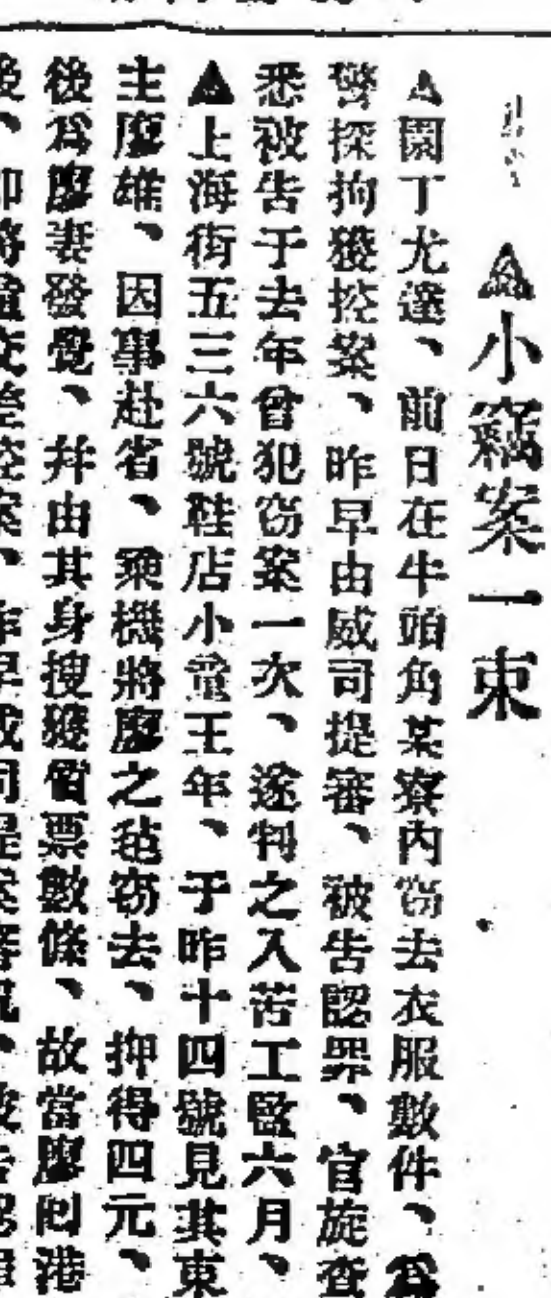 ▲小竊案一束
▲園丁尤選、前日在牛頭角某寮内窃去衣服數件、爲
警探拘獲控案、昨早由威司提審、被告認罪、官旋查
悉被告于去年曾犯窃案一次、遂判之入苦工監六月、
▲上海街五三六號鞋店小童王年、于昨十四號見其東
主廖雄、因事赴省、乘機將廖之毡窃去、抑得四元、
後爲廖妻發覺、并由其身搜獲當票數條、故當廖囘港